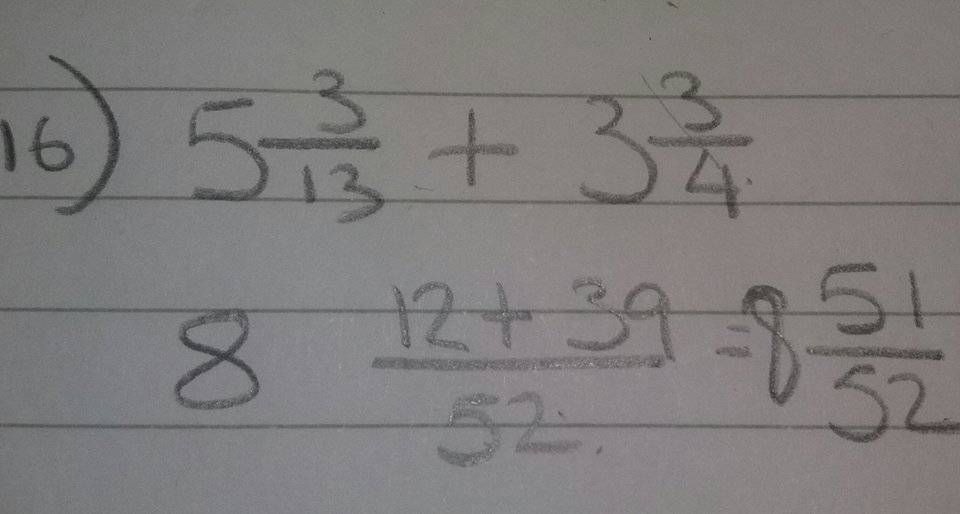 16) 5 3/13 + 3 3/4
8 (12 + 39)/52 = 8 51/52